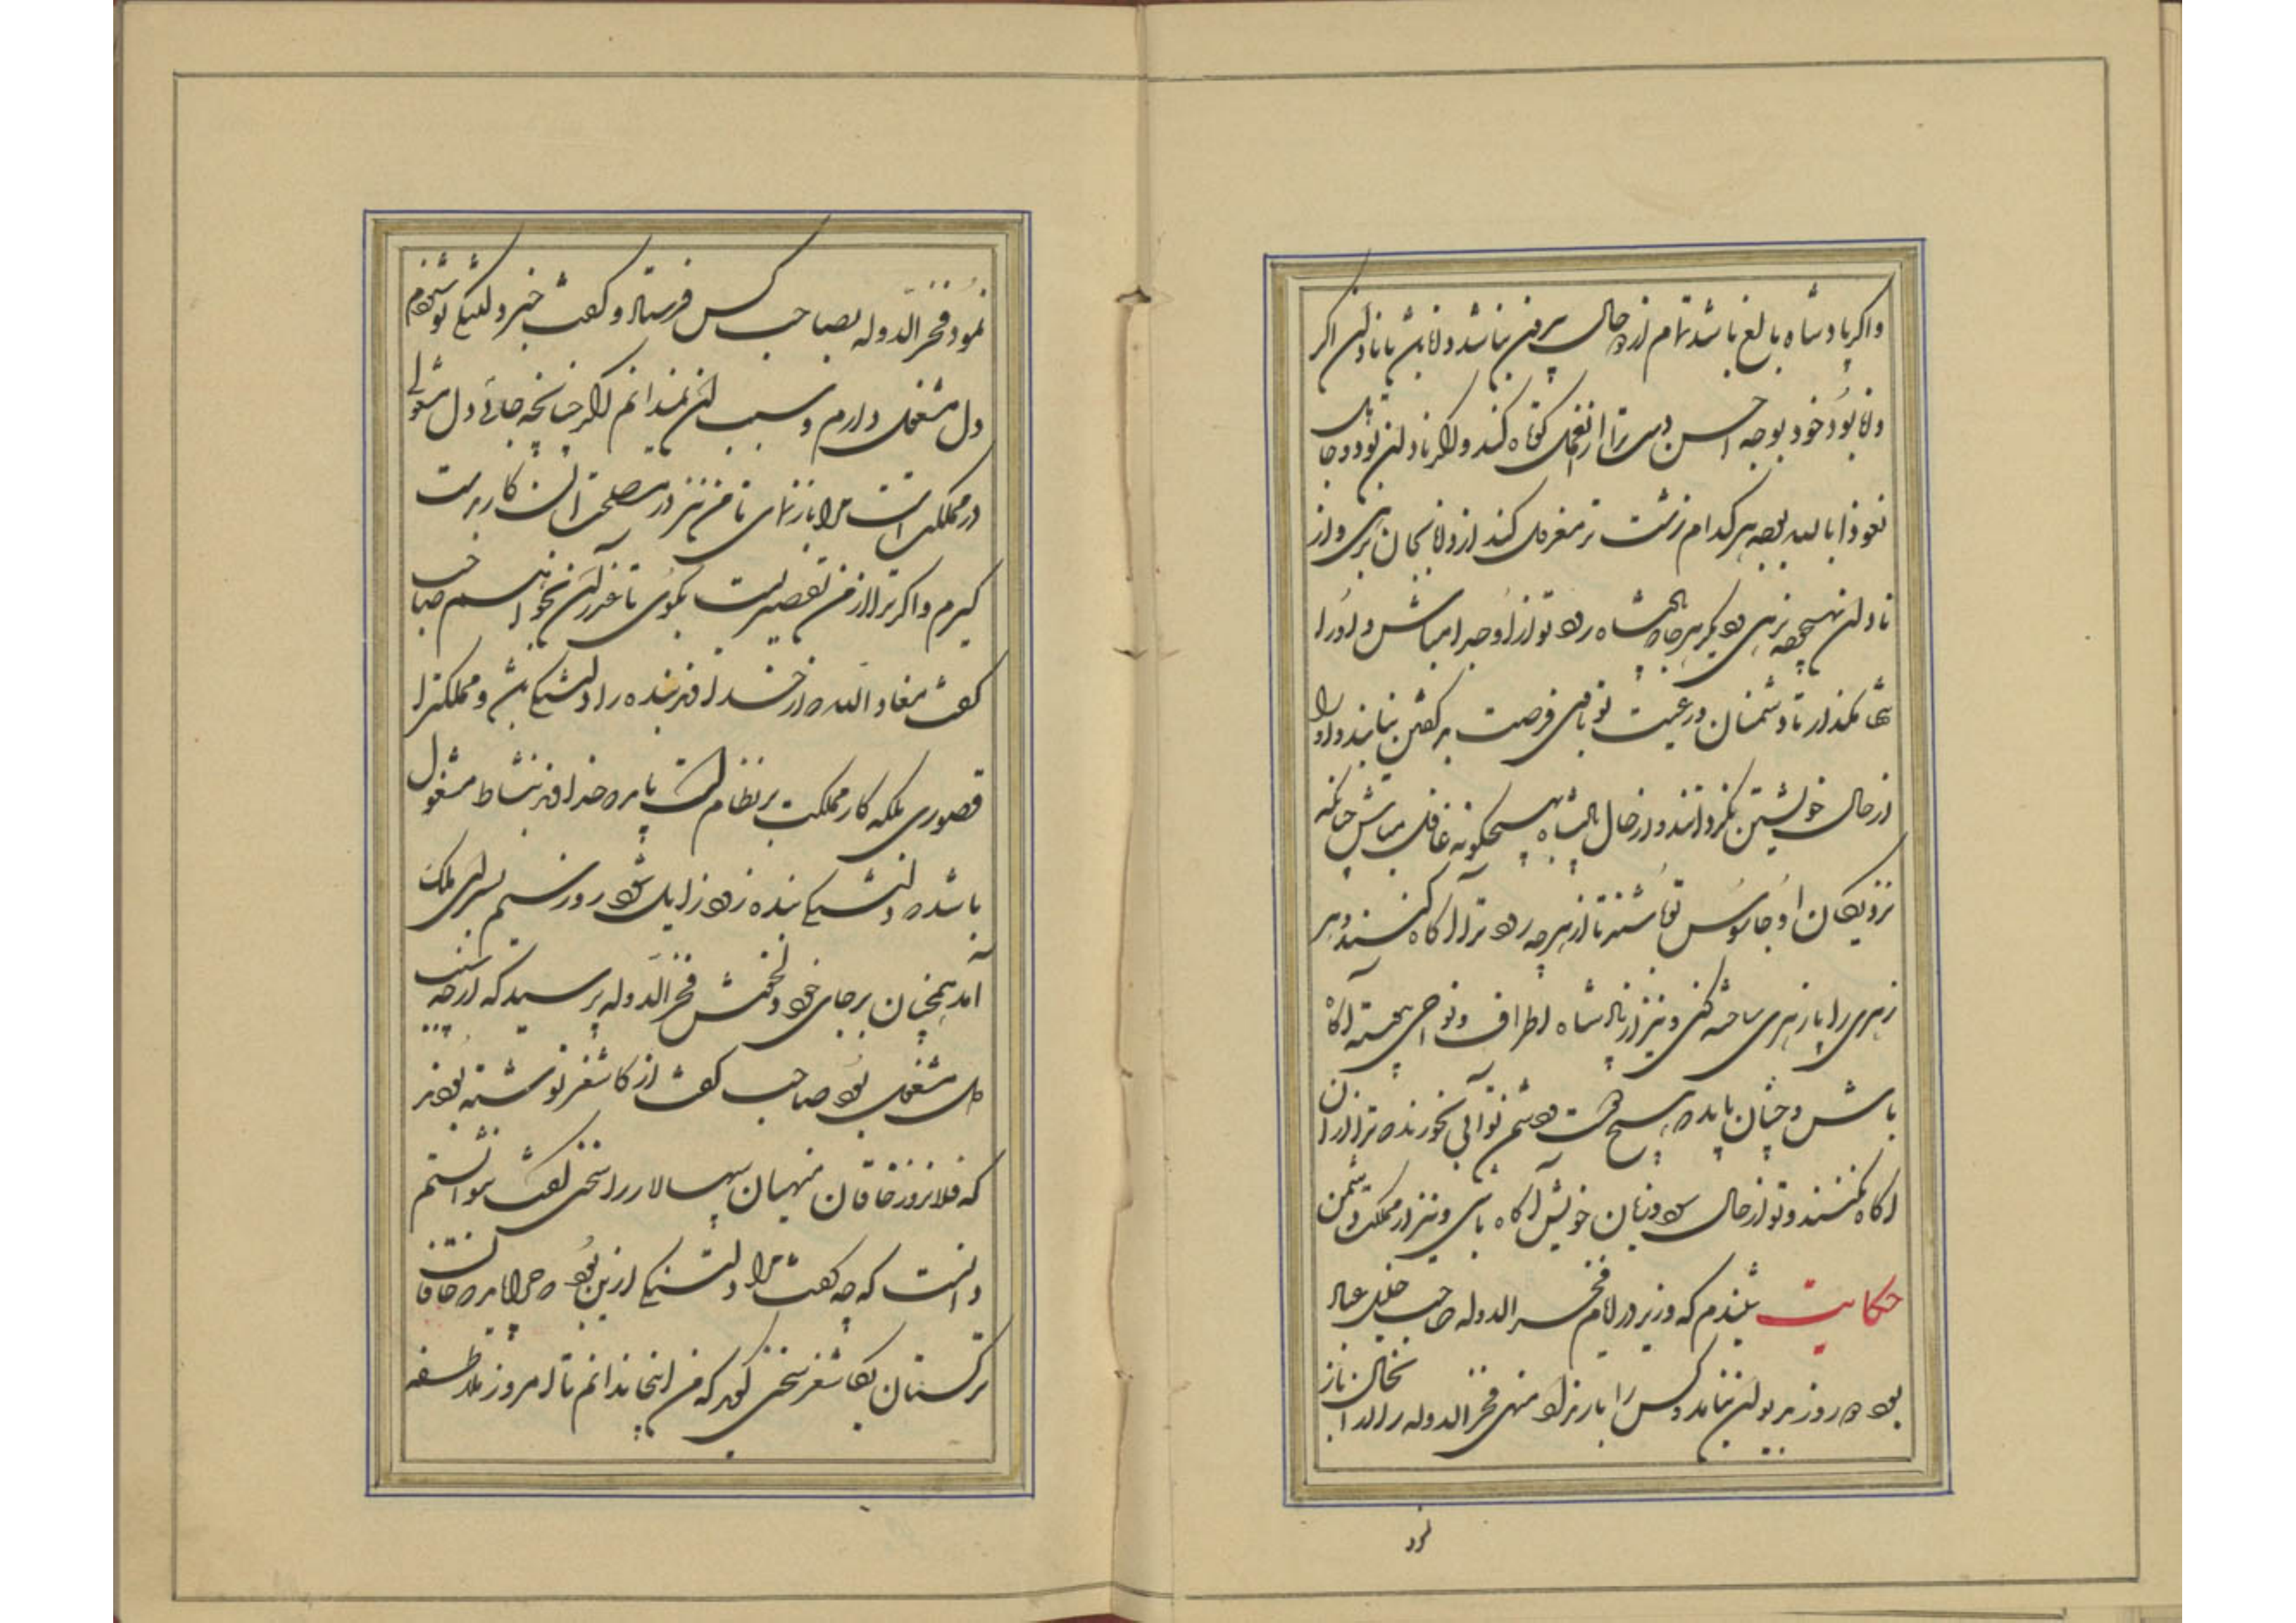 واگر پادشاه بالغ باشد تمام از دو حال بیرون نباشد و دانا باشد یا نادان اگر
دانا بود خود بوجه احسن دست ترا از عمل کوتاه کند و اگر نادان بود و جاهل
نعوذا بالله بوجهی هر کدام زشت تر معزول کند از دانا بجان برهی و از
نادان بهیچوجه نرهی و دیگر هرجا که پادشاه رود تو از او جدا مباش و او را
تنها مگذار تا دشمنان در غیبت تو با وی فرصت بد گفتن نیابند و او را
از حال خویشتن نگردانند و از حال پادشاه بهیچگونه غافل مباش چنانکه
نزدیکان او جاسوس تو باشند تا از هرچه رود ترا آگاه کنند و هر
زهری را پازهری ساخته کنی و نیز از پادشاه اطراف و نواحی پیوسته آگاه
باش و چنان باید که هیچ دوست و دشمن تو آبی نخورند که ترا از آن
آگاه نکنند و تو از حال سود و زیان خویش آگاه باشی و نیز از مملکت دشمن
حکایت شنیدم که وزیر در ایام فخر الدوله صاحب جلیل عباد
بود دو روز بدیوان نیامد و کس را بار نداد منهی فخر الدوله را از آنحال باز
نمود فخر الدوله بصاحب کس فرستاد و گفت خبر دلتنگی تو شنودم
دل مشغول دارم و سبب آن نمیدانم اگر چنانچه جائی دل مشغولی
در مملکت است مرا باز نمای تا من نیز در مصلحت آن کار بدست
گیرم و اگر ترا از من تقصیریست بگوی تا عذر آن بخواهم صاحب
گفت معاذ الله که از خداوند بنده را دلتنگی باشد و مملکت را
قصوری بلکه کار مملکت بر نظام است باید که خداوند بنشاط مشغول
باشد که دلتنگی بنده زود زایل شود روز سیم بسرای ملک
آمد همچنان بر جای خود و دلخوش فخر الدوله پرسید که از چه سبب
دل مشغول بود صاحب گفت از کاشغر نوشته بودند
که فلانروز خاقان منهیان سپهسالار را سخنی گفت نتوانستم
دانست که چه گفت مرا دلتنگی از این بود که چرا باید که خاقان
ترکستان بکاشغر سخنی گوید که من اینجا ندانم تا امروز ملاطفه
نمود